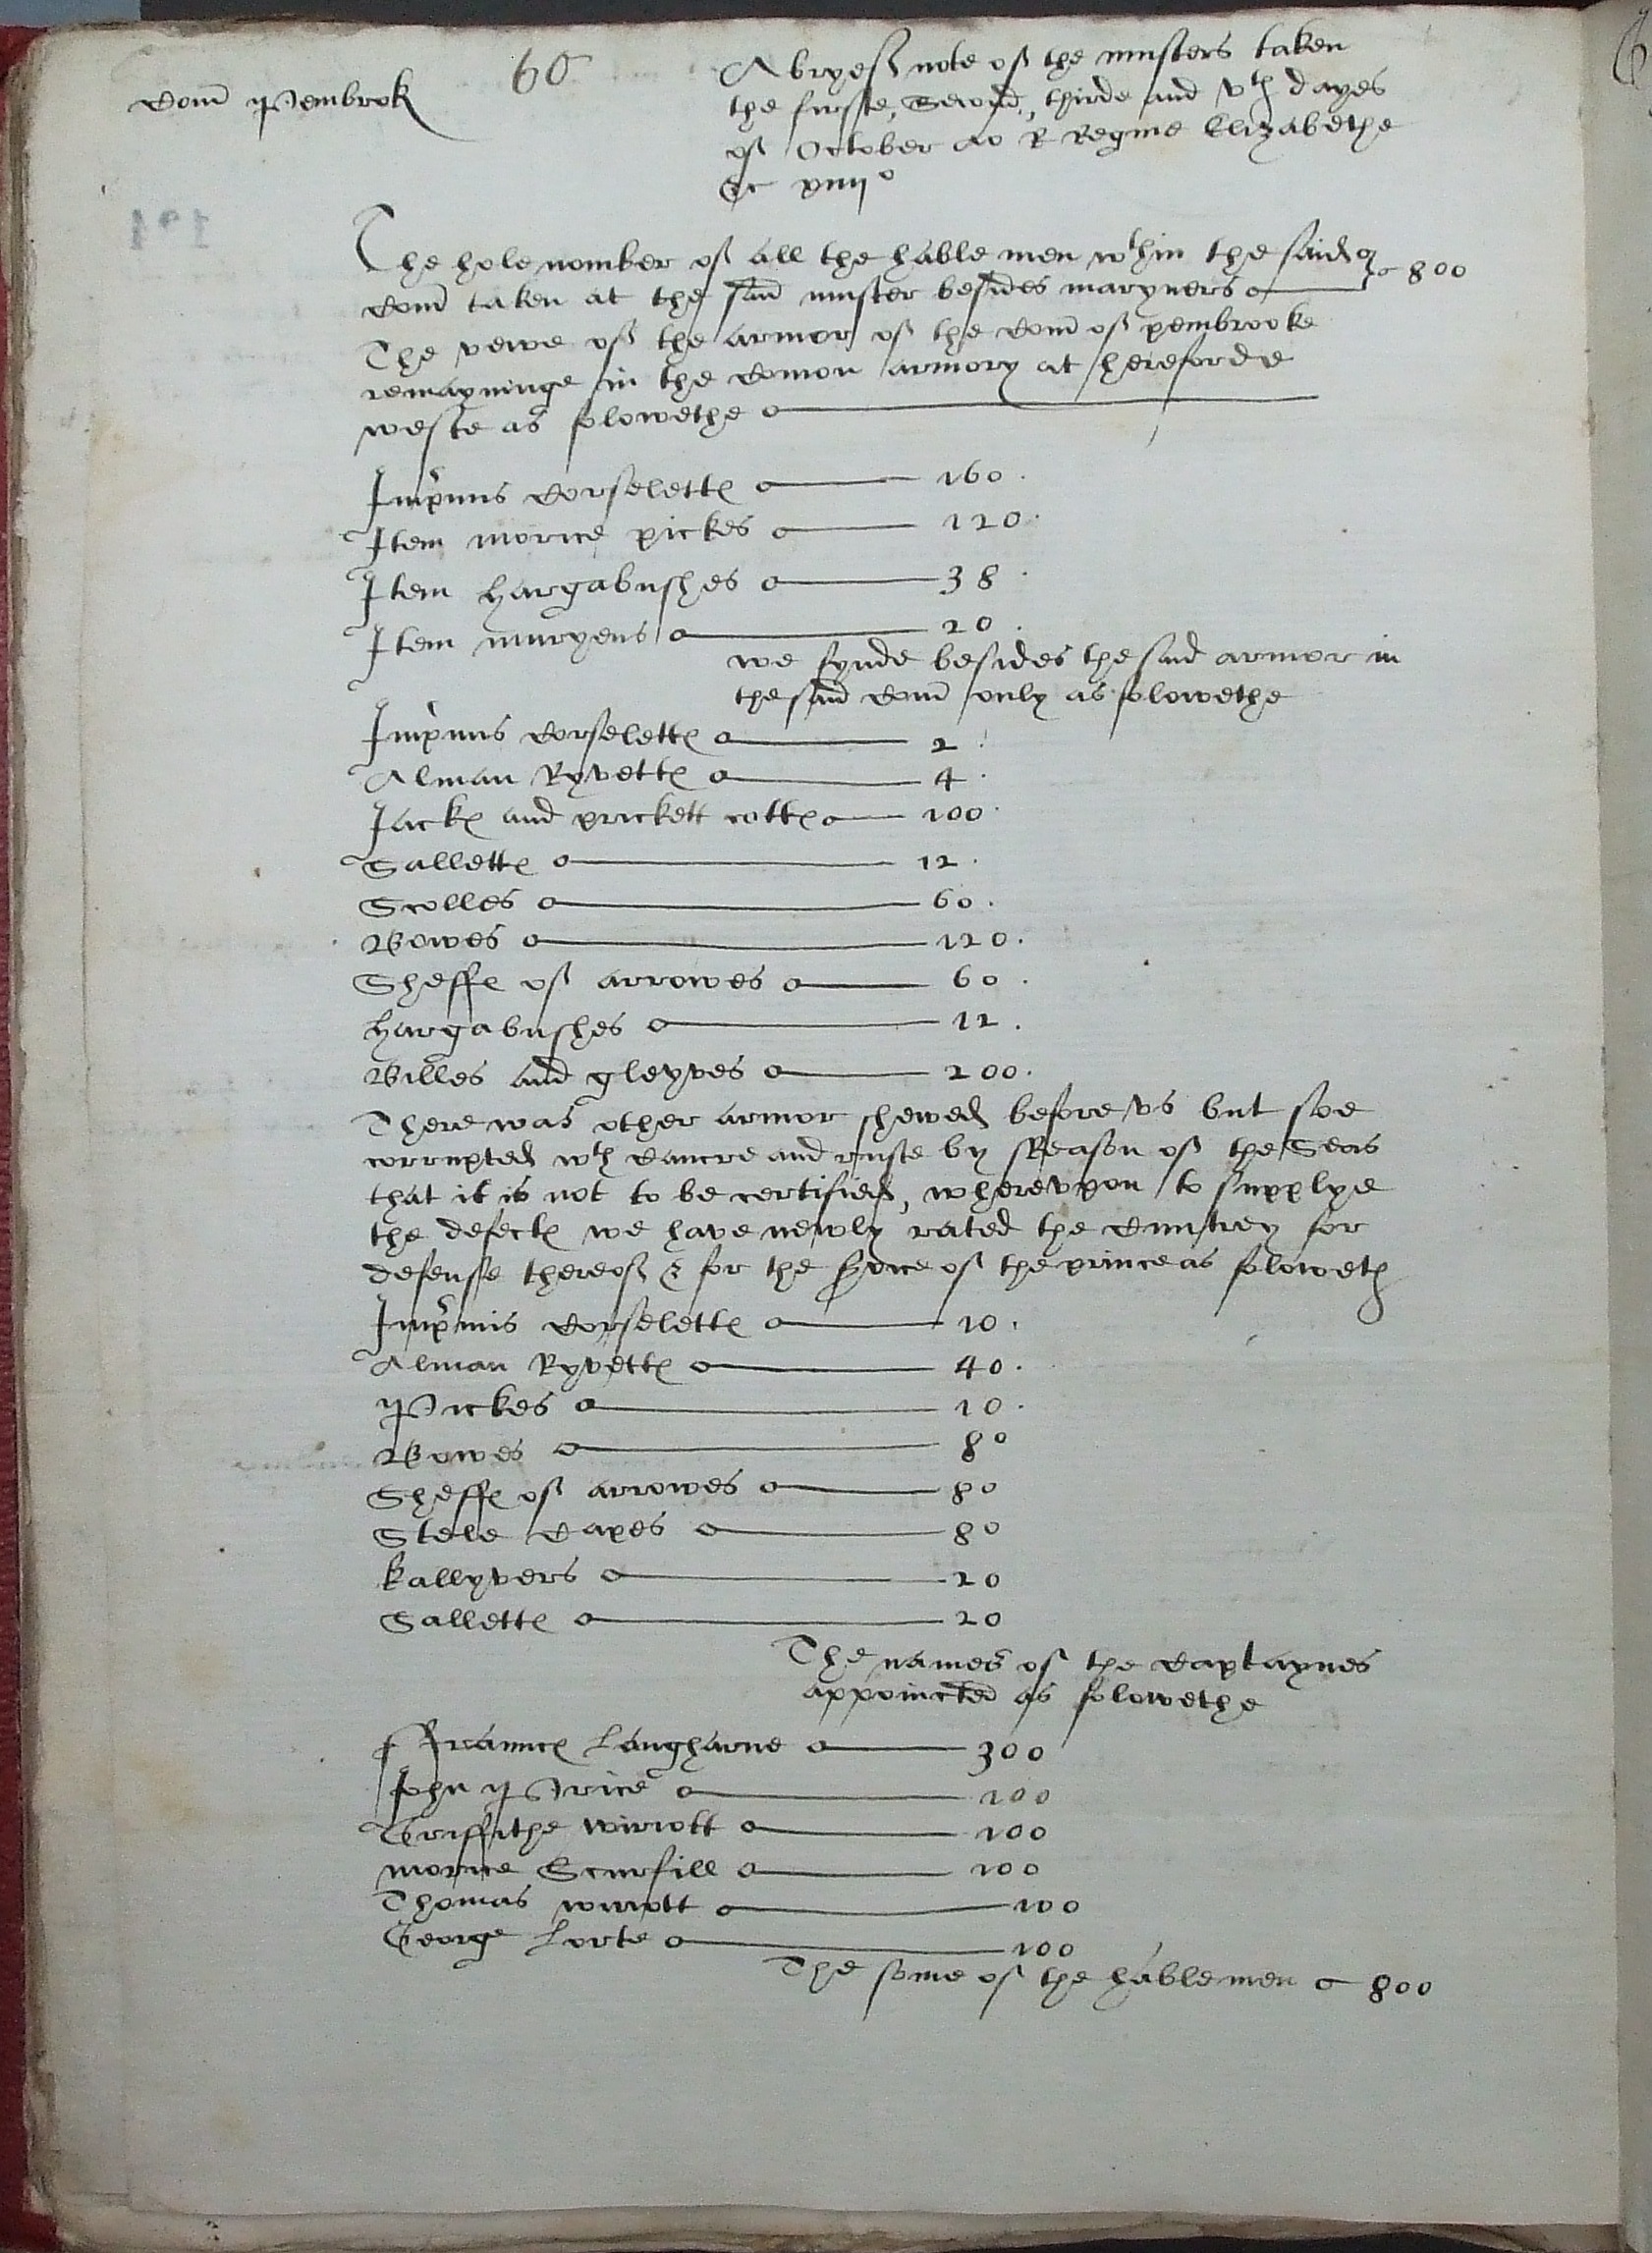 Com Pembrok
60
A bryeff note off the musters taken
the firste, Second, thirde and vth dayes
off October Ao R Regine Elizabethe
&c xiiijo
The hole nomber off all the hable men wthin the said
Com taken at the said muster besides maryners 800
The vewe off the armor off the Com off pembrooke
remayninge in the Comon armory at hereforde
weste as folowethe
Inprimis Corselettes 160.
Item morice pickes 120.
Item Hargabushes 38.
Item muryens 20.
we fynde besides the said armor in
the said Com only as folowethe
Inprimis Corselettes 2.
Alman Ryvettes 4.
Jackes and prickett cottes 100.
Sallettes 12.
Scolles 60.
Bowes 120.
Sheffes off arrowes 60.
Hargabushes 12.
Billes and gleyves 200.
There was other armor shewed before vs but soe
corrupted wth Cancre and ruste by Reason off the Seas
that it is not to be certified, wherevpon to supplye
the defectes we have newly rated the Cuntrey for
defense thereoff & for the service off the prince as foloweth
Inprimis Corselettes 10.
Alman Ryvettes 40.
Pickes 10.
Bowes 80
Sheffes off arrowes 80
Stele Capes 80
Kallyvers 20
Sallettes 20
The names off the Captaynes
appoincted as folowethe
ffraunces Laugharne 300
John Price 100
Griffithe Wiriott 100
morice Scurfill 100
Thomas wiriott 100
George Lorte 100
The some off the hable men 800